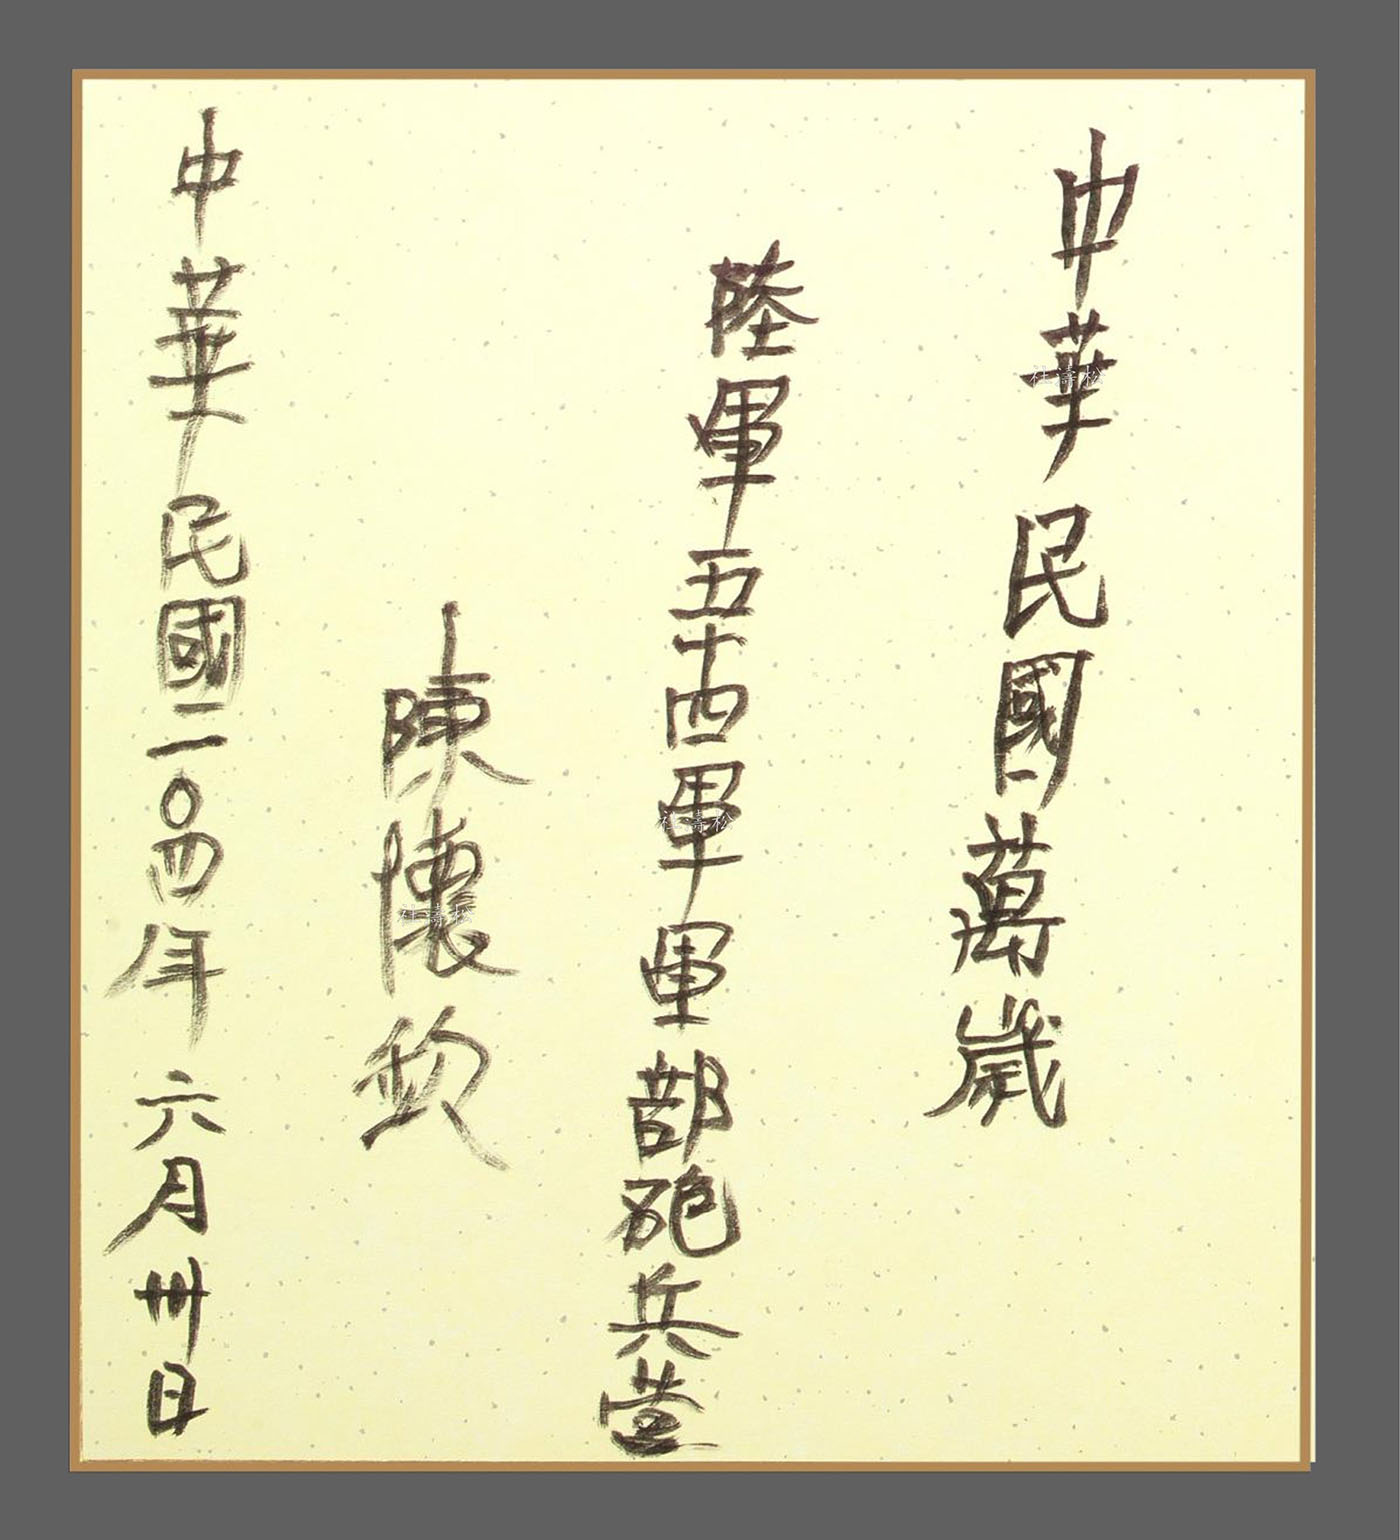 中華民國萬歲
陸軍五十四軍軍部砲兵營
陳懷欽
中華民國一〇四年六月卅日
杜壽松
杜壽松
杜壽松